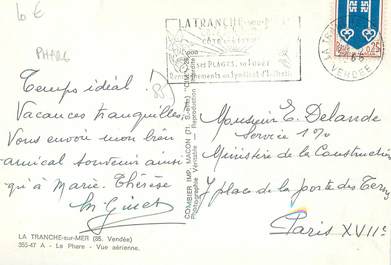 10 €
PHARE
LA TRANCHE-SUR-MER
CÔTE DE LUMIÈRE
SES PLAGES, SA FORÊT
LA TRANCHE
VENDÉE
0,25
Temps idéal !
Vacances tranquilles.
Vous envoie mon bien
amical souvenir ainsi
qu'à Marie. Thérèse
LA TRANCHE-sur-MER (85. Vendée)
355-47 A - Le Phare - Vue aérienne.
COMBIER IMP. MACON (71. S.-et-L.) "CIM"
Photographie Véritable - Reproduction Interdite
Monsieur E. Delande
Service
Ministère de la Construction
place de la porte des Ternes
Paris XVIIe